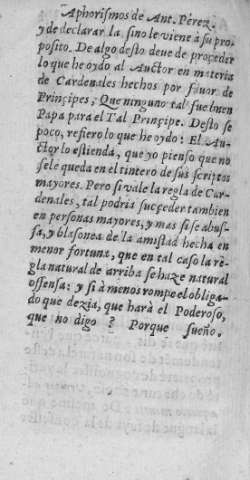 Aphorismos de Ant. Pérez.
y de declarar la, sino le viene à su pro-
posito. De algo desto deue de proçeder
lo que he oydo al Auctor en materia
de Cardenales hechos por fauor de
Prinçipes; Que ninguno tal fue buen
Papa para el Tal Prinçipe. Desto se
poco, refiero lo que he oydo: El Au-
ctor lo estienda, que yo pienso que no
se le queda en el tintero de sus scriptos
mayores. Pero si vale la regla de Car-
denales, tal podria sucçeder tambien
en personas mayores, y mas si se abus-
sa, y blasonea de la amistad hecha en
menor fortuna, que en tal caso la re-
gla natural de arriba se haze natural
offensa: y si à menos rompe el obliga-
do que dezia, que harà el Poderoso,
que no digo? Porque sueño.